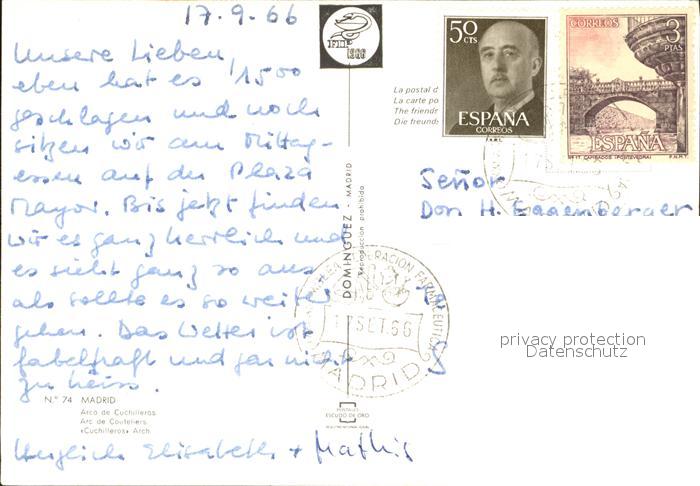 17.9.66
Unsere Lieben,
eben hat es 1500
geschlagen und noch
sitzen wir am Mittag-
essen auf der Plaza
Mayor. Bis jetzt finden
wir es ganz herrlich und
es sieht ganz so aus
als sollte es so weiter
gehen. Das Wetter ist
fabelhaft und gar nicht
zu heiss.
N.º 74 MADRID
Arco de Cuchilleros
Arc de Couteliers
«Cuchilleros» Arch.
Herzlich Elisabeth + Mathis
FIP
1966
DOMINGUEZ - MADRID
Reproducción prohibida
POSTALES
ESCUDO DE ORO
La postal d
La carte po
The friendr
Die freunds
50 CTS
ESPAÑA
CORREOS
F.N.M.T.
CORREOS 3
PTAS
ESPAÑA
CAMBADOS (PONTEVEDRA) F.N.M.T.
Señor
Don H. Eggenberger
FEDERACION FARMACEUTICA
17 SET. 66
MADRID
privacy protection
Datenschutz